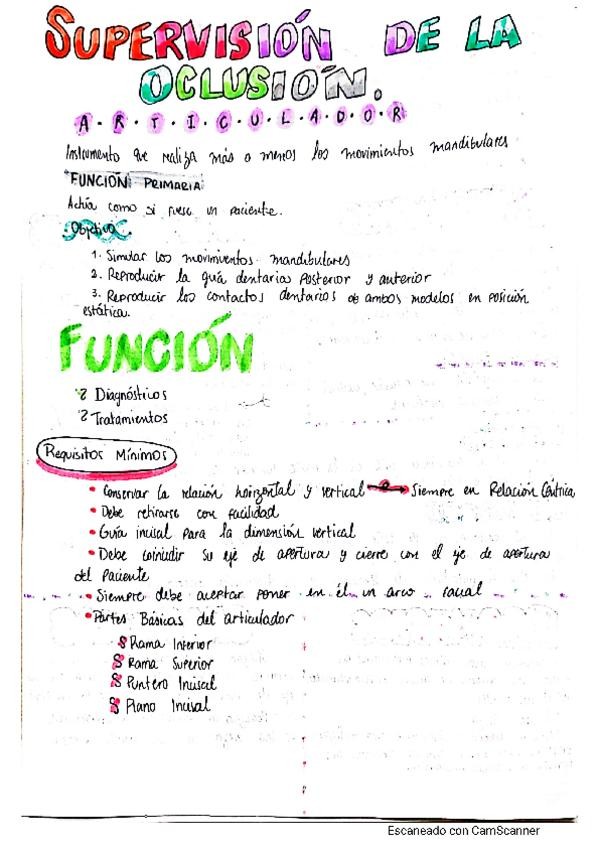 SUPERVISIÓN DE LA
OCLUSIÓN.
A.R.T.I.C.U.L.A.D.O.R
Instrumento que realiza más o menos los movimientos mandibulares
FUNCIÓN PRIMARIA:
Actúa como si fuese un paciente.
Objetivo
1. Simular los movimientos mandibulares
2. Reproducir la guía dentaria posterior y anterior
3. Reproducir los contactos dentarios de ambos modelos en posición
estática.
FUNCIÓN
Diagnósticos
Tratamientos
Requisitos Mínimos
• Conservar la relación horizontal y vertical → Siempre en Relación Céntrica
• Debe retirarse con facilidad
• Guía incisal para la dimensión vertical
• Debe coincidir su eje de apertura y cierre con el eje de apertura
del paciente
• Siempre debe aceptar poner en él un arco facial
• Partes Básicas del articulador
Rama Inferior
Rama Superior
Puntero Incisal
Plano Incisal
Escaneado con CamScanner